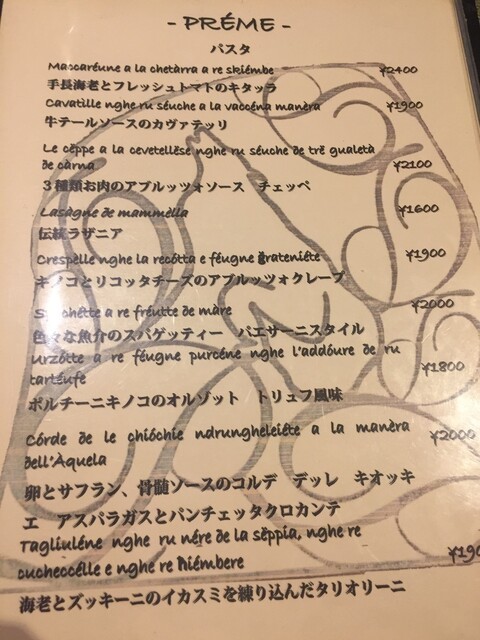 - PRÉME -
パスタ
Maccaréune a la chetàrra a re skiémbe ¥2400
手長海老とフレッシュトマトのキタッラ
Cavatille nghe ru séuche a la vaccéna manèra ¥1900
牛テールソースのカヴァテッリ
Le cëppe a la cevetellëse nghe ru séuche de trë gualetà
de càrna ¥2100
３種類お肉のアブルッツォソース チェッペ
Lasàgne de mammëlla ¥1600
伝統ラザニア
Crespëlle nghe la recótta e féugne grateniéte ¥1900
キノコとリコッタチーズのアブルッツォクレープ
a re fréutte de màre ¥2000
色々な魚介のスパゲッティー パエサーニスタイル
Urzótte a re féugne purcéne nghe l'addóure de ru
tartéufe ¥1800
ポルチーニキノコのオルゾット トリュフ風味
Córde de le chióchie ndrungheleiéte a la manèra ¥2000
dell'Àquela
卵とサフラン、骨髄ソースのコルデ デッレ キオッキ
エ アスパラガスとパンチェッタクロカンテ
Tagliuléne nghe ru nére de la sëppia, nghe re
cucheccélle e nghe re ¥190
海老とズッキーニのイカスミを練り込んだタリオリーニ